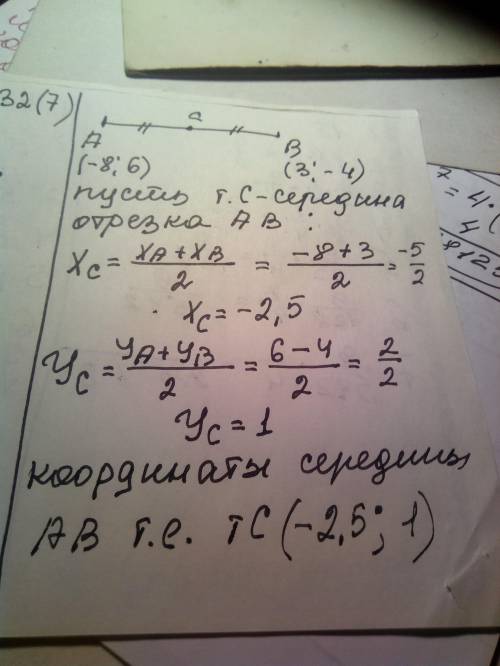 32(7)
C
A B
(-8; 6) (3; -4)
пусть т. С-середина
отрезка АВ:
Xc = (XA + XB)/2 = (-8+3)/2 = -5/2
Xc = -2,5
Yc = (YA + YB)/2 = (6-4)/2 = 2/2
Yc = 1
координаты середины
АВ т.е. тС(-2,5; 1)